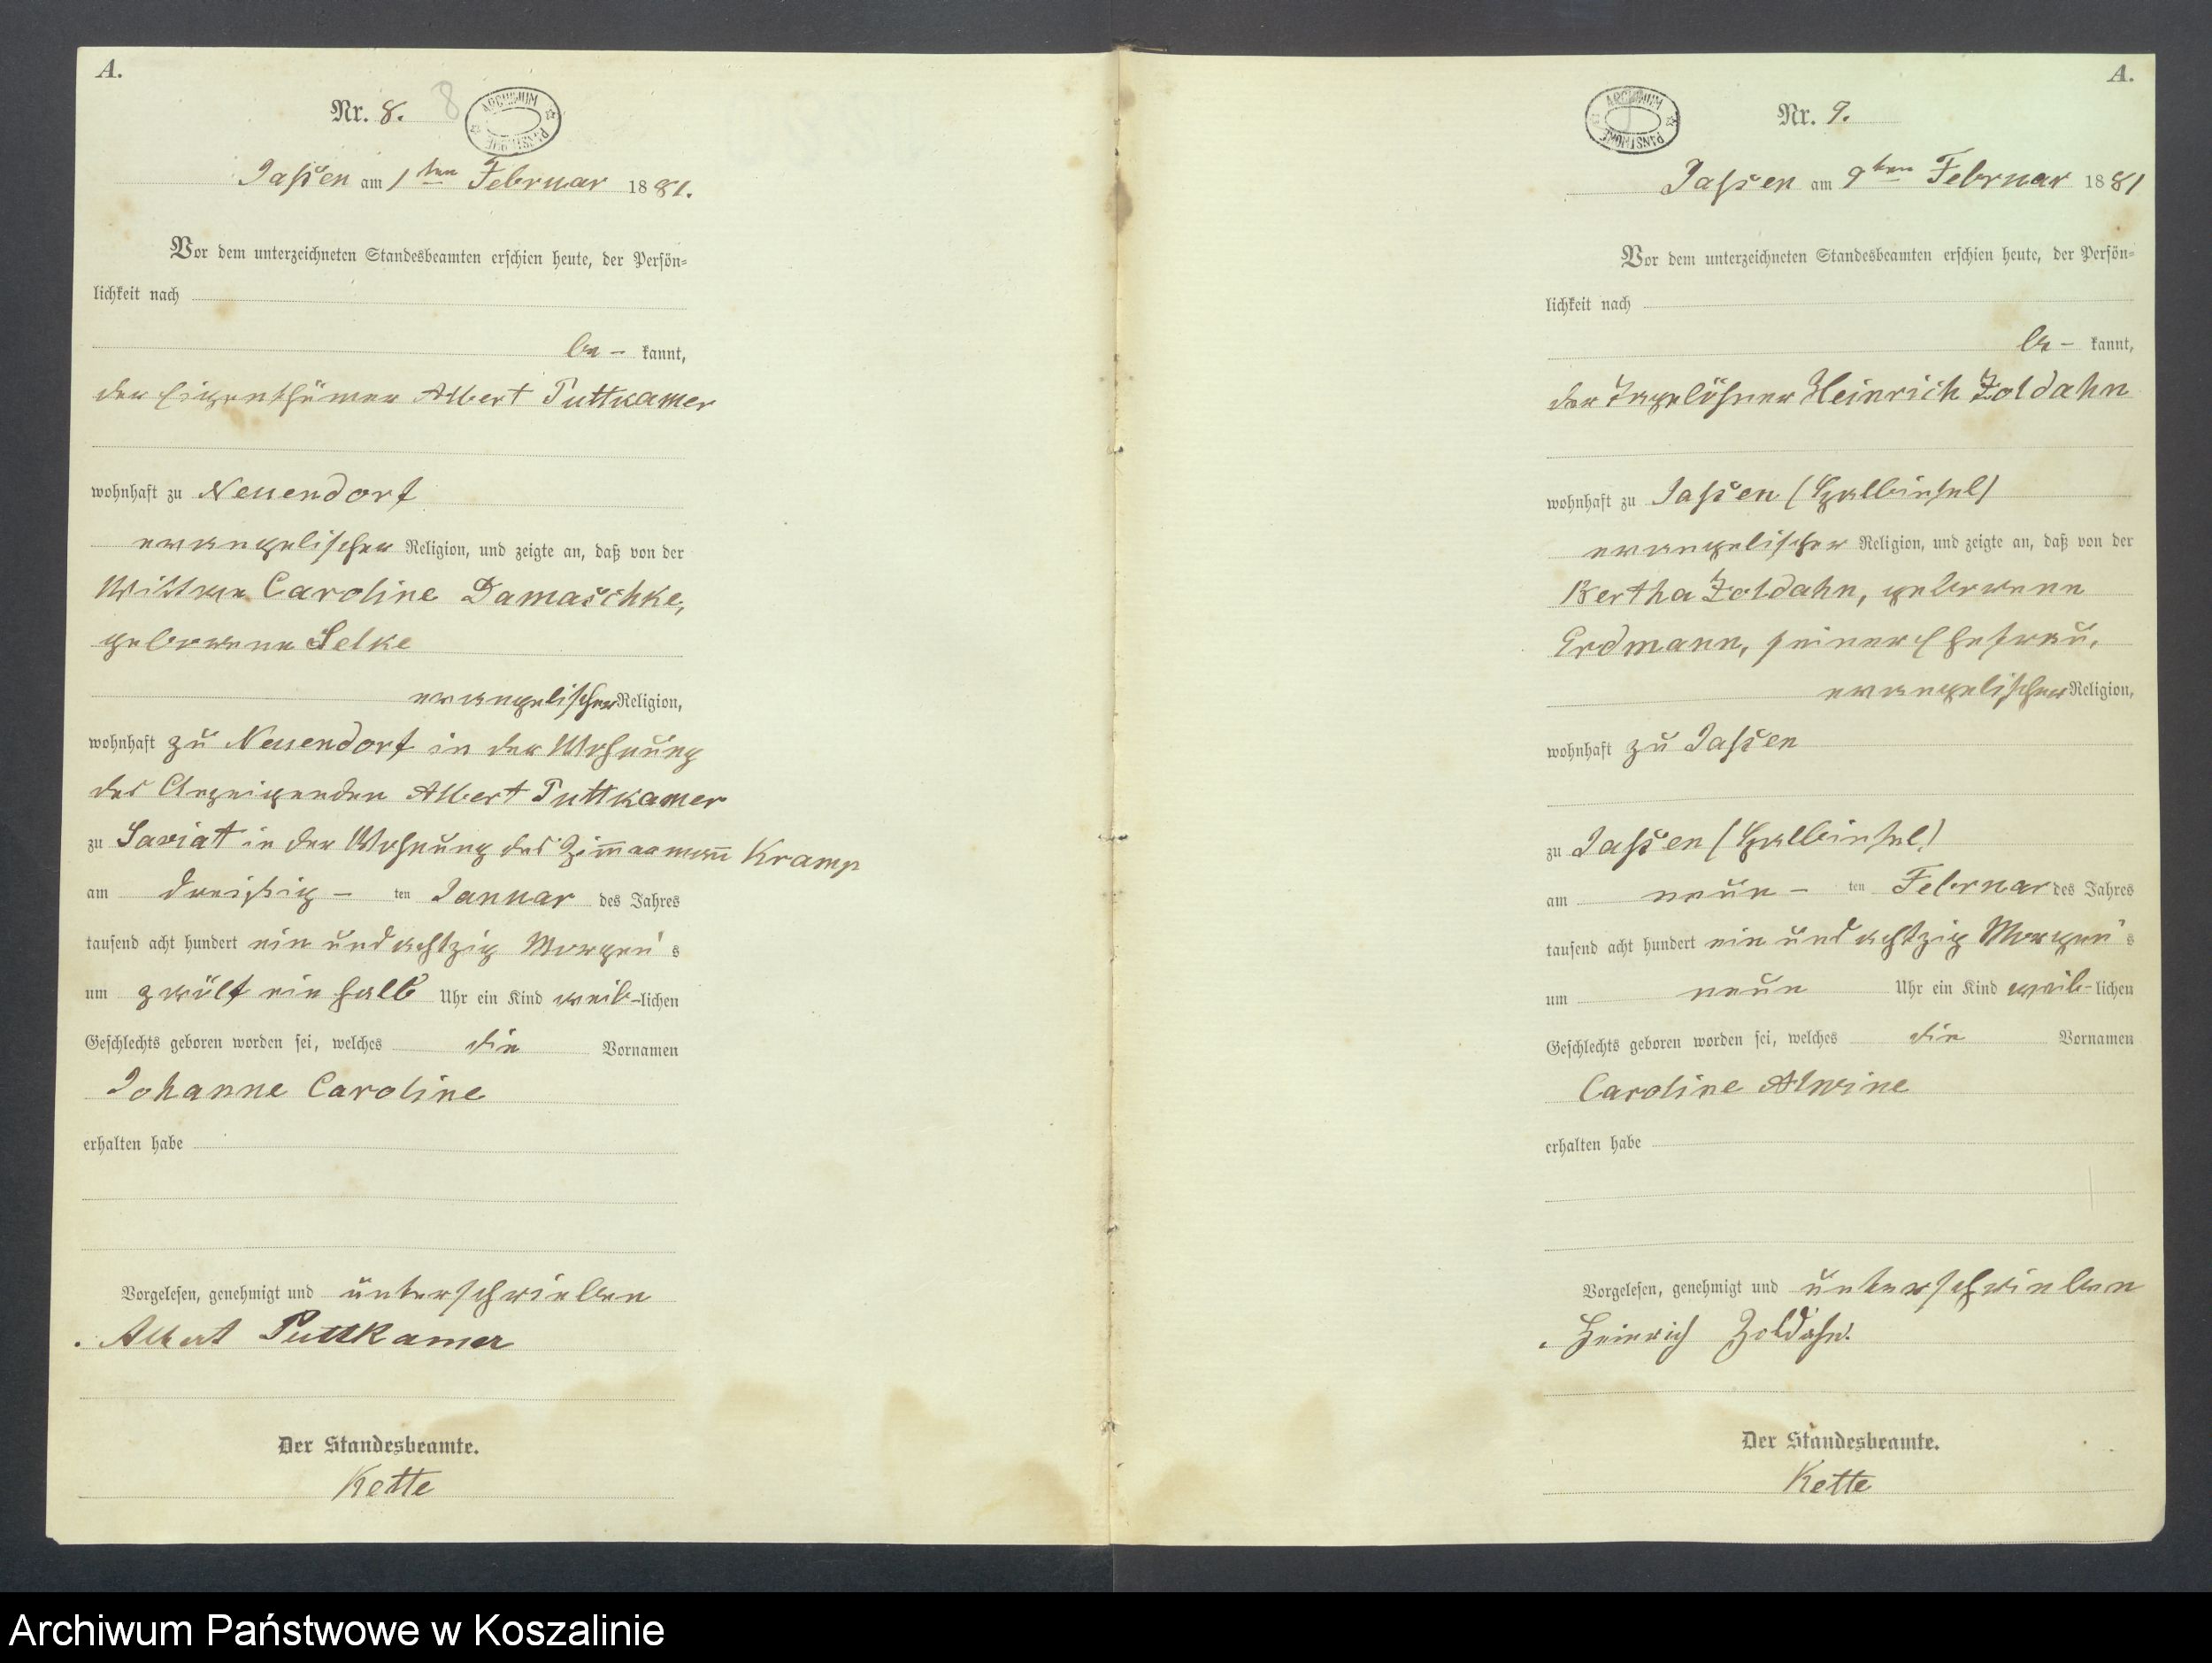 A.
Nr. 8. 8
ARCHIWUM PAŃSTWOWE
Jassen am 1ten Februar 1881.
Vor dem unterzeichneten Standesbeamten erschien heute, der Persön-
lichkeit nach
be- kannt,
der Eigenthümer Albert Puttkamer
wohnhaft zu Neuendorf
evangelischer Religion, und zeigte an, daß von der
Wittwe Caroline Damaschke,
geborene Selke
evangelischer Religion,
wohnhaft zu Neuendorf in der Wohnung
des Anzeigenden Albert Puttkamer
zu Saviat in der Wohnung des Zimmermann Kramp
am dreißig- ten Januar des Jahres
tausend acht hundert ein und achtzig Morgens
um zwölf ein halb Uhr ein Kind weib-lichen
Geschlechts geboren worden sei, welches die Vornamen
Johanne Caroline
erhalten habe
Vorgelesen, genehmigt und unterschrieben
Albert Puttkamer
Der Standesbeamte.
Kette
A.
ARCHIWUM PAŃSTWOWE
Nr. 9.
Jassen am 9ten Februar 1881
Vor dem unterzeichneten Standesbeamten erschien heute, der Persön-
lichkeit nach
be- kannt,
der Tagelöhner Heinrich Zoldahn
wohnhaft zu Jassen (Halbinsel)
evangelischer Religion, und zeigte an, daß von der
Bertha Zoldahn, geborene
Erdmann, seiner Ehefrau,
evangelischer Religion,
wohnhaft zu Jassen
zu Jassen (Halbinsel)
am neun- ten Februar des Jahres
tausend acht hundert ein und achtzig Morgens
um neun Uhr ein Kind weib-lichen
Geschlechts geboren worden sei, welches die Vornamen
Caroline Alwine
erhalten habe
Vorgelesen, genehmigt und unterschrieben
Heinrich Zoldahn.
Der Standesbeamte.
Kette
Archiwum Państwowe w Koszalinie